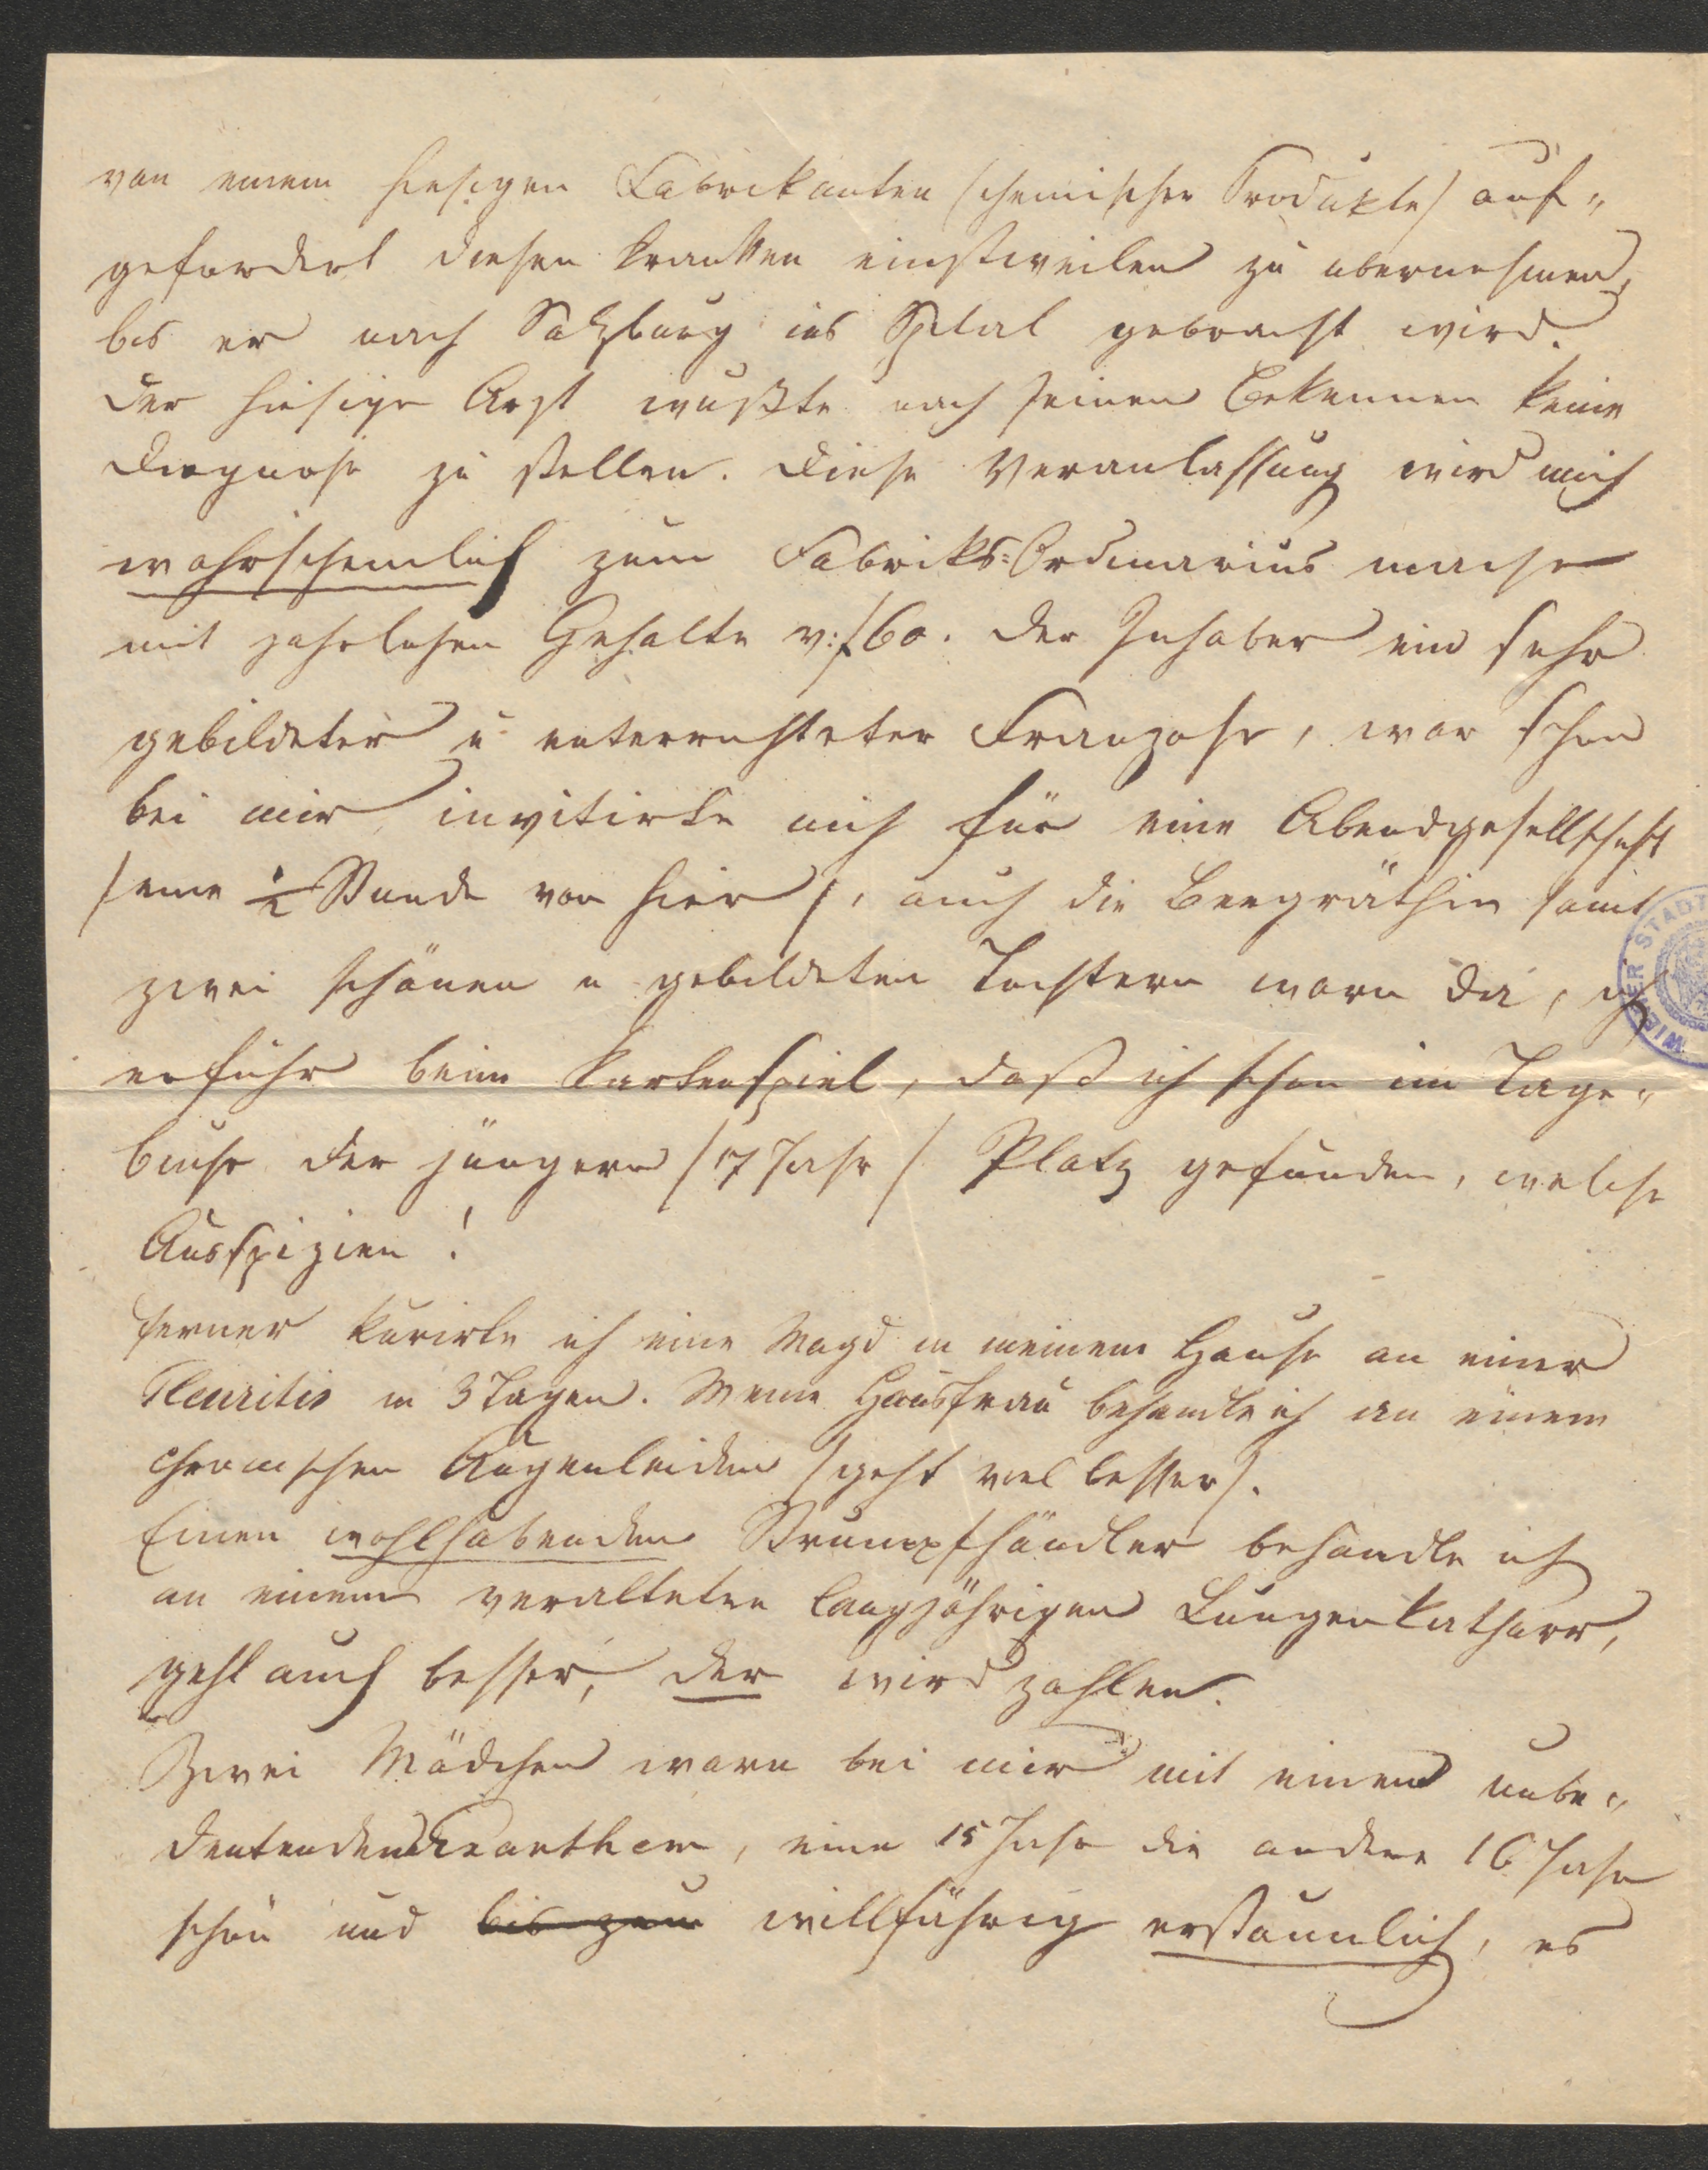 von einem hiesigen Fabrikanten /chemischer Produkte/ auf„
gefordert diesen Kranken einstweilen zu übernehmen,
bis er nach Salzburg ins Spital gebracht wird.
Der hiesige Arzt wußte nach seinem Bekennen keine
Diagnose zu stellen. Diese Veranlassung wird mich
wahrscheinlich zum Fabriks=Ordinarius machen
mit jahrlichen Gehalte v: f 60. Der Inhaber ein sehr
gebildeter u unterrichteter Franzose, war schon
bei mir, invitirte mich für eine Abendgesellschaft
/eine ½ Stunde von hier/, auch die Bergräthin samt
zwei schönen u gebildeten Töchtern waren da, ich
erfuhr beim Kartenspiel, daß ich schon im Tage„
buche der jüngern /17 Jahr/ Platz gefunden, welche
Ausspizien!
Ferner kurirte ich eine Magd in meinem Hause an einer
Pleuritis in 3 Tagen. Meine Hausfrau behandle ich an einem
chronischen Augenleiden /geht viel besser/.
Einen wohlhabenden Strumpfhändler behandle ich
an einem veralteten langjährigen Lungenkatharr,
geht auch besser, der wird zahlen.
Zwei Mädchen waren bei mir mit einem unbe„
deutenden Exanthem, eine 15 Jahr die andere 16 Jahr
schön und bis zum willfährig erstaunlich, es
WIENER STADT